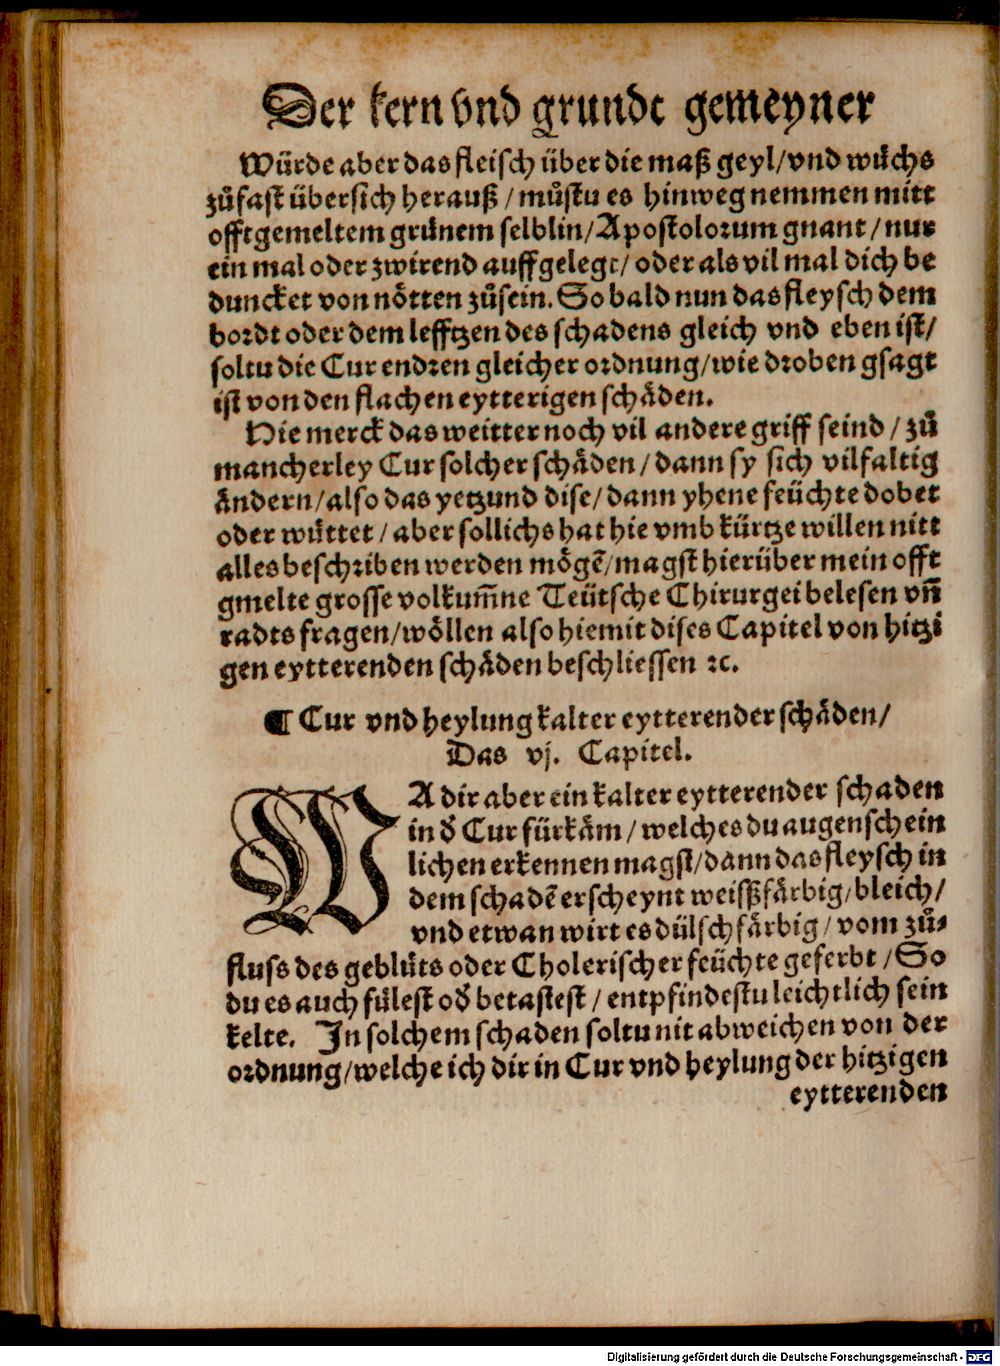 Der kern vnd grundt gemeyner
Würde aber das fleisch über die maß geyl/vnd wuͤchs
zuͦfast übersich herauß / muͦstu es hinweg nemmen mitt
offtgemeltem gruͤnem selblin/Apostolorum gnant / nur
ein mal oder zwirend auffgelegt/ oder als vil mal dich be
duncket von noͤtten zuͦsein. So bald nun das fleysch dem
bordt oder dem lefftzen des schadens gleich vnd eben ist/
soltu die Cur endren gleicher ordnung/wie droben gsagt
ist von den flachen eytterigen schaͤden.
Hie merck das weitter noch vil andere griff seind / zuͦ
mancherley Cur solcher schaͤden / dann sy sich vilfaltig
aͤndern/also das yetzund dise/dann yhene feüchte dobet
oder wuͤttet / aber sollichs hat hie vmb kürtze willen nitt
alles beschriben werden moͤgẽ/magst hierüber mein offt
gmelte grosse volkum̃ne Teütsche Chirurgei belesen vñ
radts fragen/woͤllen also hiemit dises Capitel von hitzi
gen eytterenden schaͤden beschliessen ꝛc.
¶ Cur vnd heylung kalter eytterender schaͤden/
Das vj. Capitel.
WA dir aber ein kalter eytterender schaden
in d' Cur fürkaͤm / welches du augenschein
lichen erkennen magst/dann das fleysch in
dem schadẽ erscheynt weißfaͤrbig/bleich/
vnd etwan wirt es dülschfaͤrbig / vom zuͦ⸗
fluss des gebluͤts oder Cholerischer feüchte geferbt / So
du es auch fuͤlest od' betastest / entpfindestu leichtlich sein
kelte. In solchem schaden soltu nit abweichen von der
ordnung/welche ich dir in Cur vnd heylung der hitzigen
eytterenden
Digitalisierung gefördert durch die Deutsche Forschungsgemeinschaft - DFG